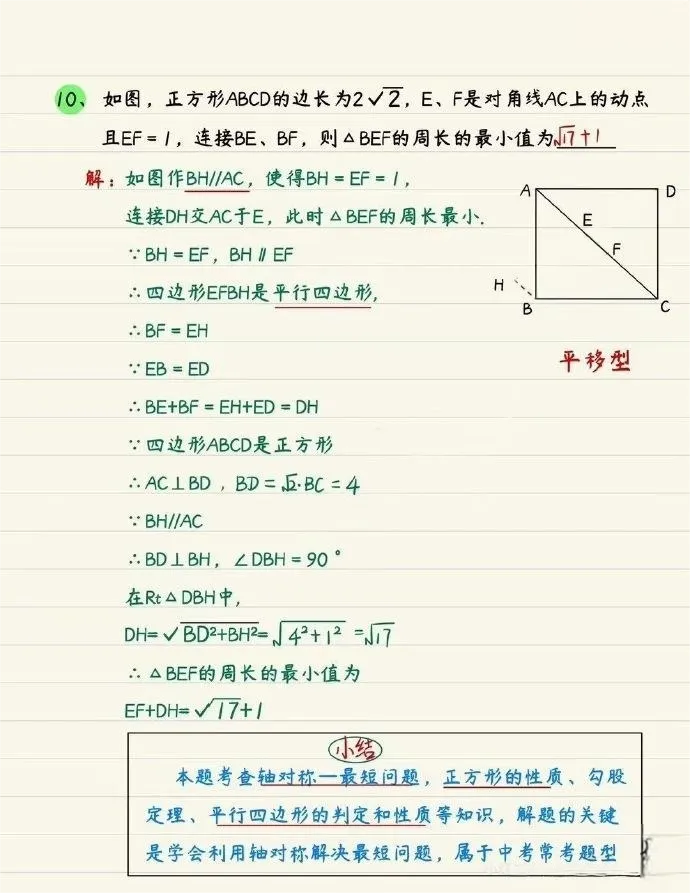 10、如图，正方形ABCD的边长为2√2，E、F是对角线AC上的动点
且EF = 1，连接BE、BF，则△BEF的周长的最小值为√17+1
解：如图作BH//AC，使得BH = EF = 1，
连接DH交AC于E，此时△BEF的周长最小.
∵BH = EF，BH // EF
∴四边形EFBH是平行四边形，
∴BF = EH
∵EB = ED
∴BE+BF = EH+ED = DH
∵四边形ABCD是正方形
∴AC⊥BD，BD = √2·BC = 4
∵BH//AC
∴BD⊥BH，∠DBH = 90°
在Rt△DBH中，
DH=√BD²+BH²=√4²+1² =√17
∴△BEF的周长的最小值为
EF+DH=√17+1
A
D
E
F
H
B
C
平移型
小结
本题考查轴对称一最短问题，正方形的性质、勾股
定理、平行四边形的判定和性质等知识，解题的关键
是学会利用轴对称解决最短问题，属于中考常考题型